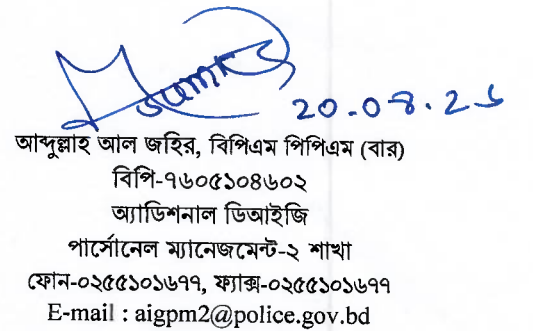 20.08.26
আব্দুল্লাহ আল জহির, বিপিএম পিপিএম (বার)
বিপি-৭৬০৫১০৪৬০২
অ্যাডিশনাল ডিআইজি
পার্সোনেল ম্যানেজমেন্ট-২ শাখা
ফোন-০২৫৫১০১৬৭৭, ফ্যাক্স-০২৫৫১০১৬৭৭
E-mail : aigpm2@police.gov.bd